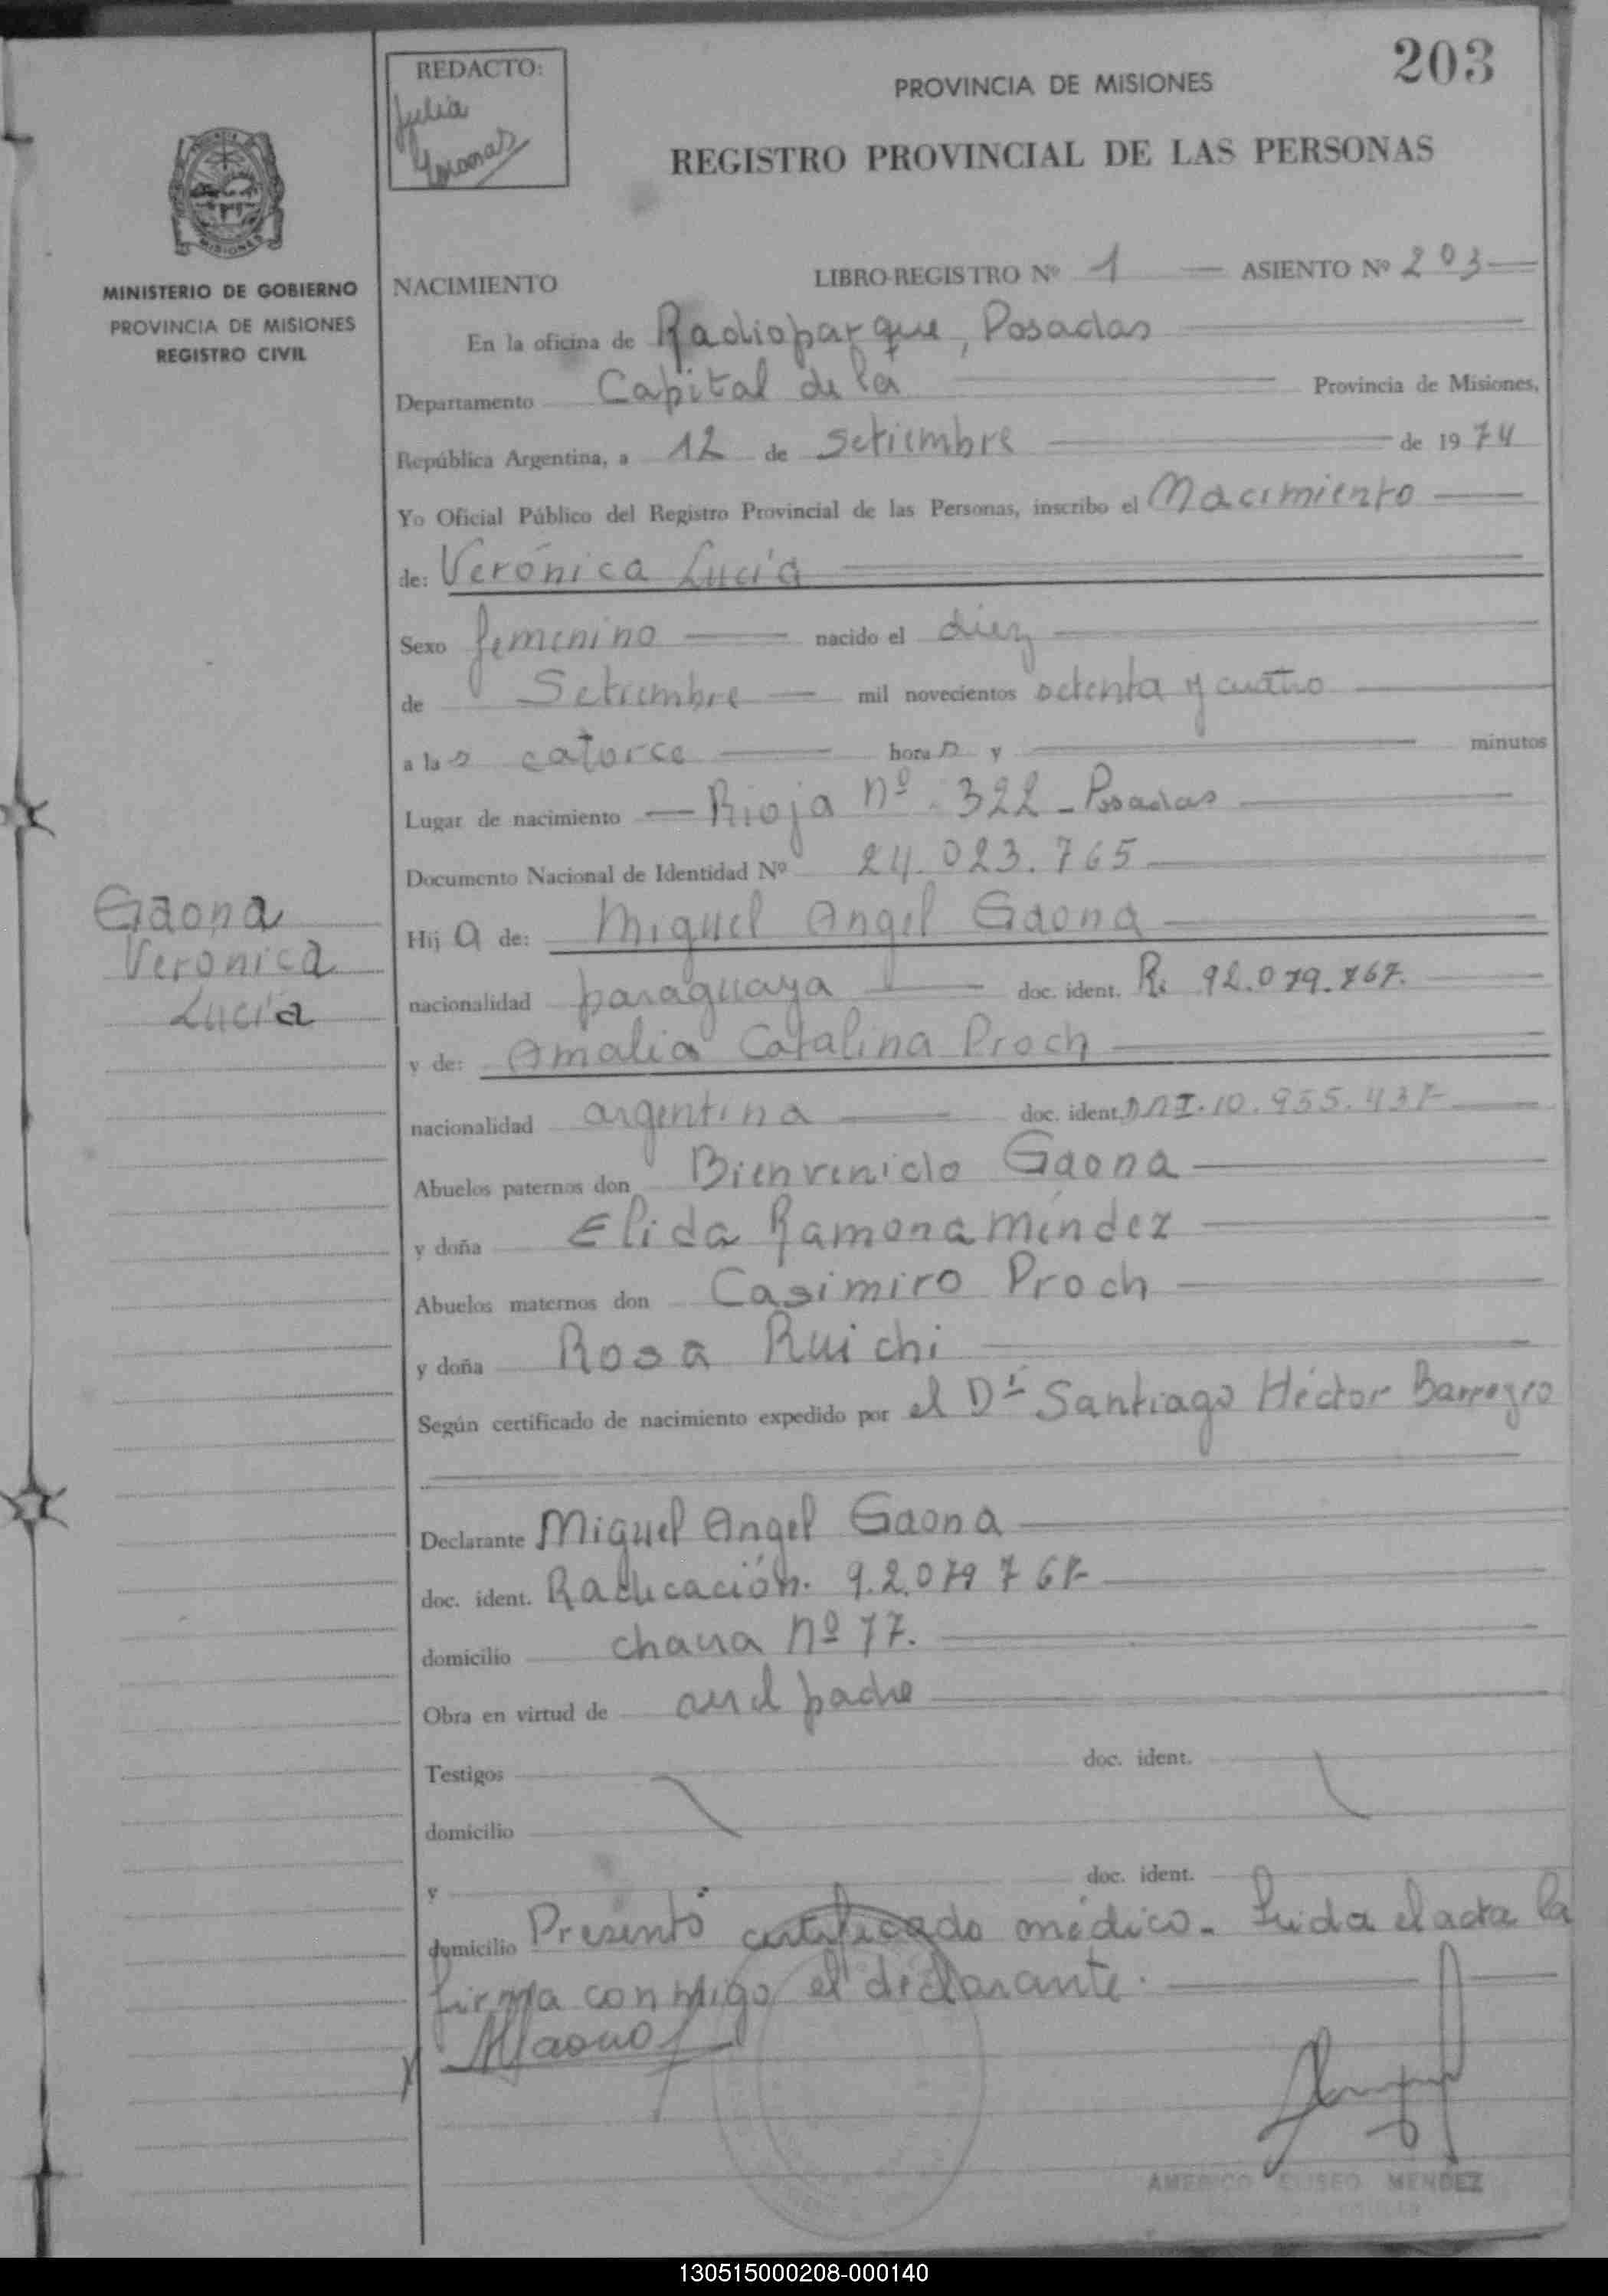 203
REDACTO:
Julia
PROVINCIA DE MISIONES
REGISTRO PROVINCIAL DE LAS PERSONAS
MISIONES
MINISTERIO DE GOBIERNO
PROVINCIA DE MISIONES
REGISTRO CIVIL
NACIMIENTO LIBRO-REGISTRO Nº 1 ASIENTO Nº 203
En la oficina de Radioparque, Posadas
Departamento Capital de la Provincia de Misiones,
República Argentina, a 12 de Setiembre de 1974
Yo Oficial Público del Registro Provincial de las Personas, inscribo el Nacimiento
de: Verónica Lucía
Sexo femenino nacido el diez
de Setiembre mil novecientos setenta y cuatro
a las catorce horas y minutos
Lugar de nacimiento Rioja nº 322 - Posadas
Documento Nacional de Identidad Nº 24.023.765
Gaona
Veronica
Lucía
Hija de: Miguel Angel Gaona
nacionalidad paraguaya doc. ident. R. 92.079.767.
y de: Amalia Catalina Proch
nacionalidad argentina doc. ident. DNI. 10.955.437
Abuelos paternos don Bienvenido Gaona
y doña Elida Ramona Méndez
Abuelos maternos don Casimiro Proch
y doña Rosa Ruichi
Según certificado de nacimiento expedido por el Dr Santiago Héctor
Declarante Miguel Angel Gaona
doc. ident. Radicación. 92.079 767
domicilio chacra nº 77.
Obra en virtud de ser el padre
Testigos doc. ident.
domicilio
y doc. ident.
domicilio Presentó certificado médico. Leida el acta la
firma conmigo el declarante.
AMERICO ELISEO MENDEZ
130515000208-000140